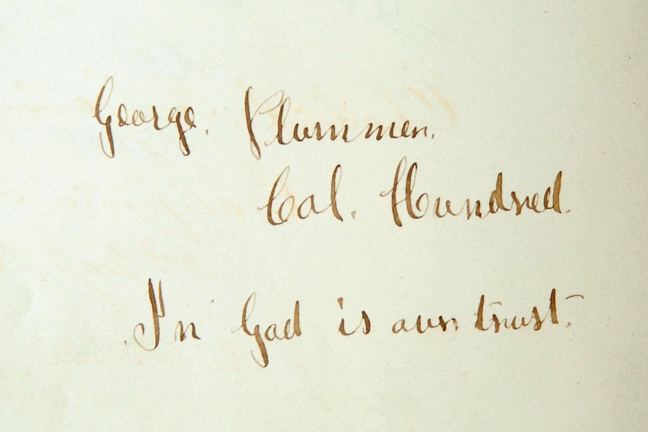 George. Plummer.
Col. Hundred.
In God is our trust.